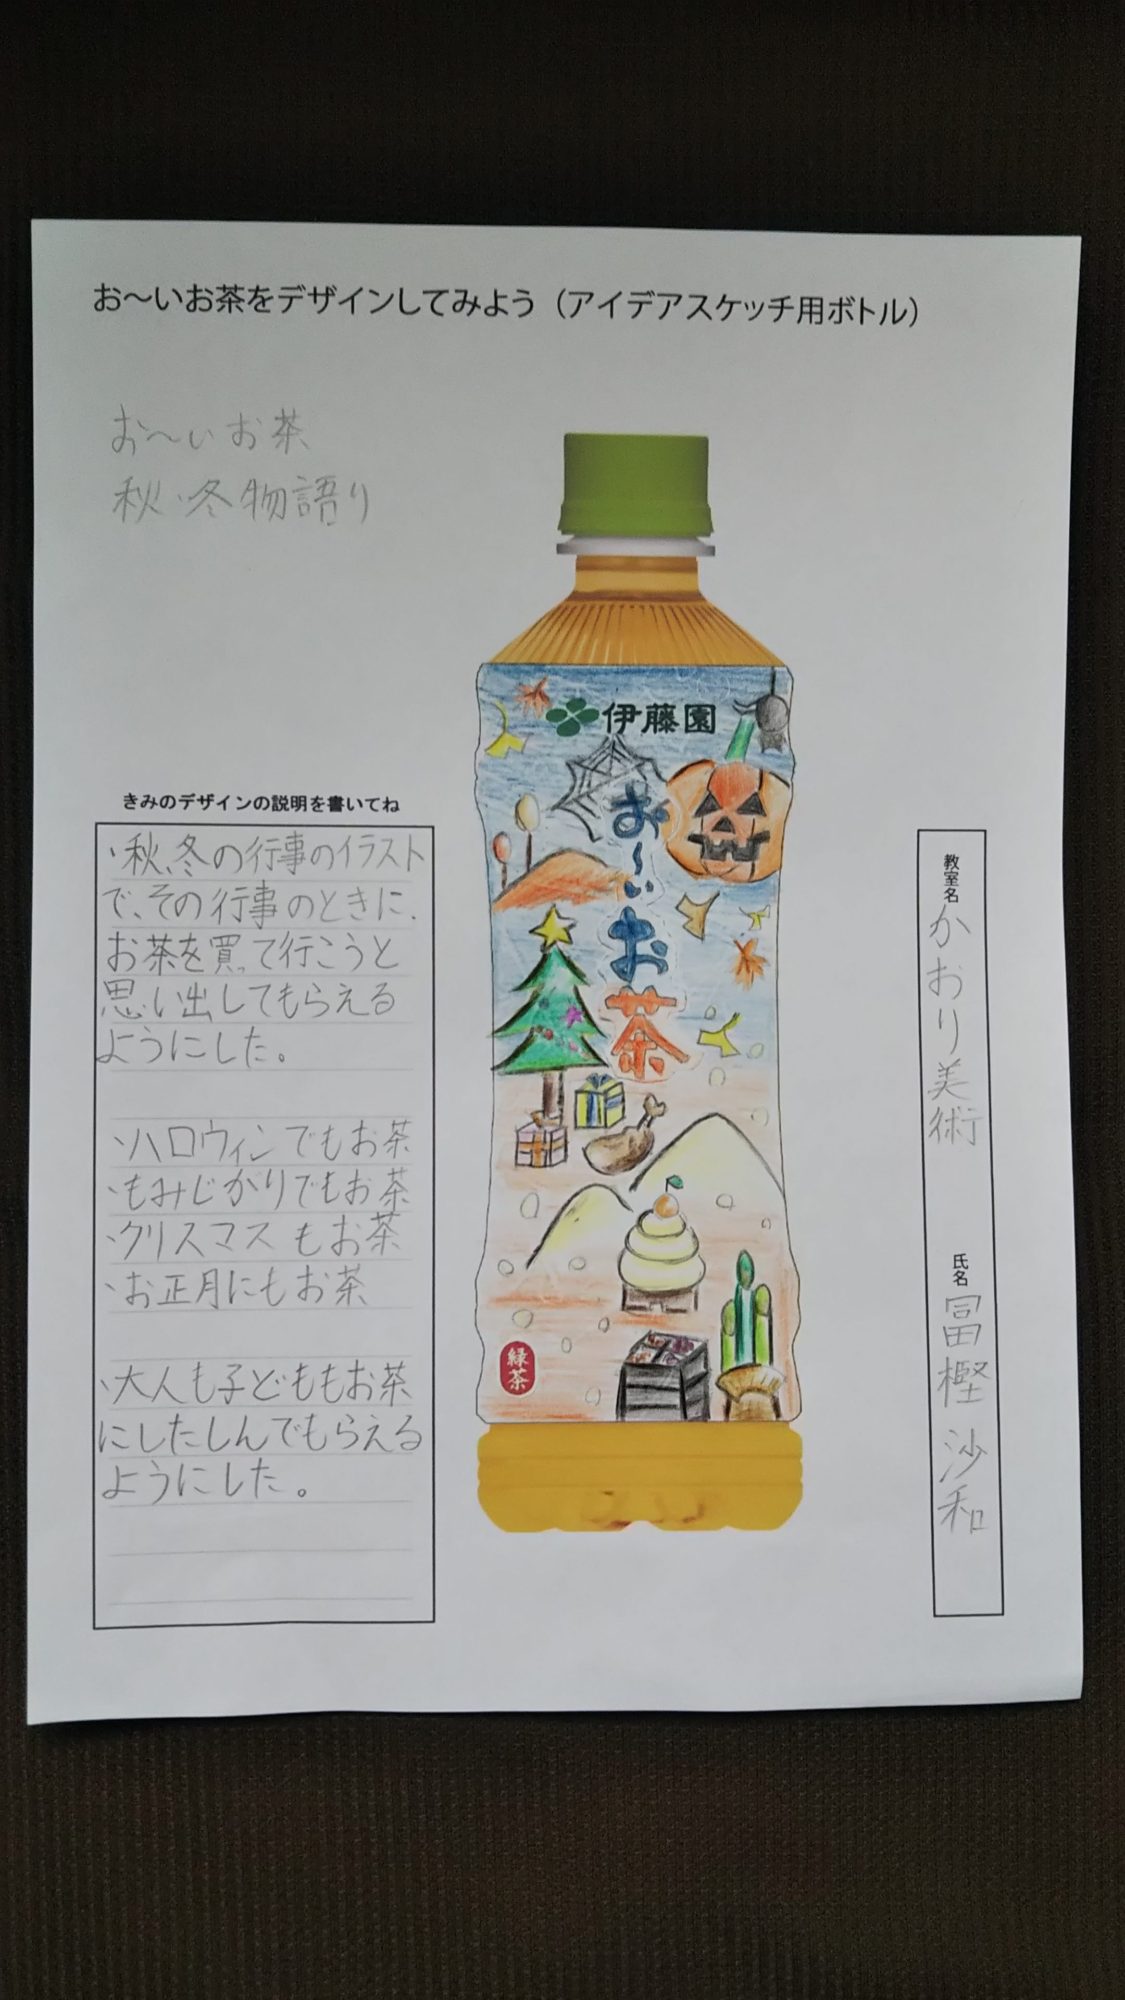 お～いお茶をデザインしてみよう（アイデアスケッチ用ボトル）
お～いお茶
秋、冬物語り
伊藤園
お～いお茶
緑茶
きみのデザインの説明を書いてね
・秋、冬の行事のイラスト
で、その行事のときに、
お茶を買って行こうと
思い出してもらえる
ようにした。
・ハロウィンでもお茶
・もみじがりでもお茶
・クリスマスもお茶
・お正月にもお茶
・大人も子どももお茶
にしたしんでもらえる
ようにした。
教室名 かおり美術
氏名 冨樫 沙和